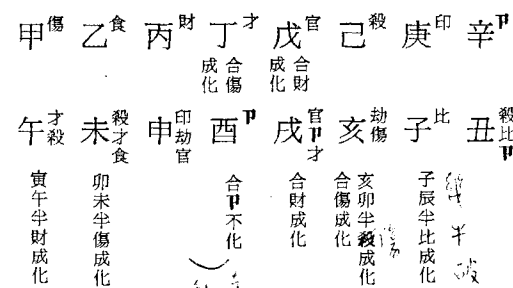 甲傷 乙食 丙財 丁才 戊官 己殺 庚印 辛卩
合傷成化
合財成化
午才殺 未殺才食 申印劫官 酉卩 戌官卩才 亥劫傷 子比 丑殺比卩
寅午半財成化
卯未半傷成化
合卩不化
合財成化
亥卯半殺成化
合傷成化
子辰半比成化
傷
半破